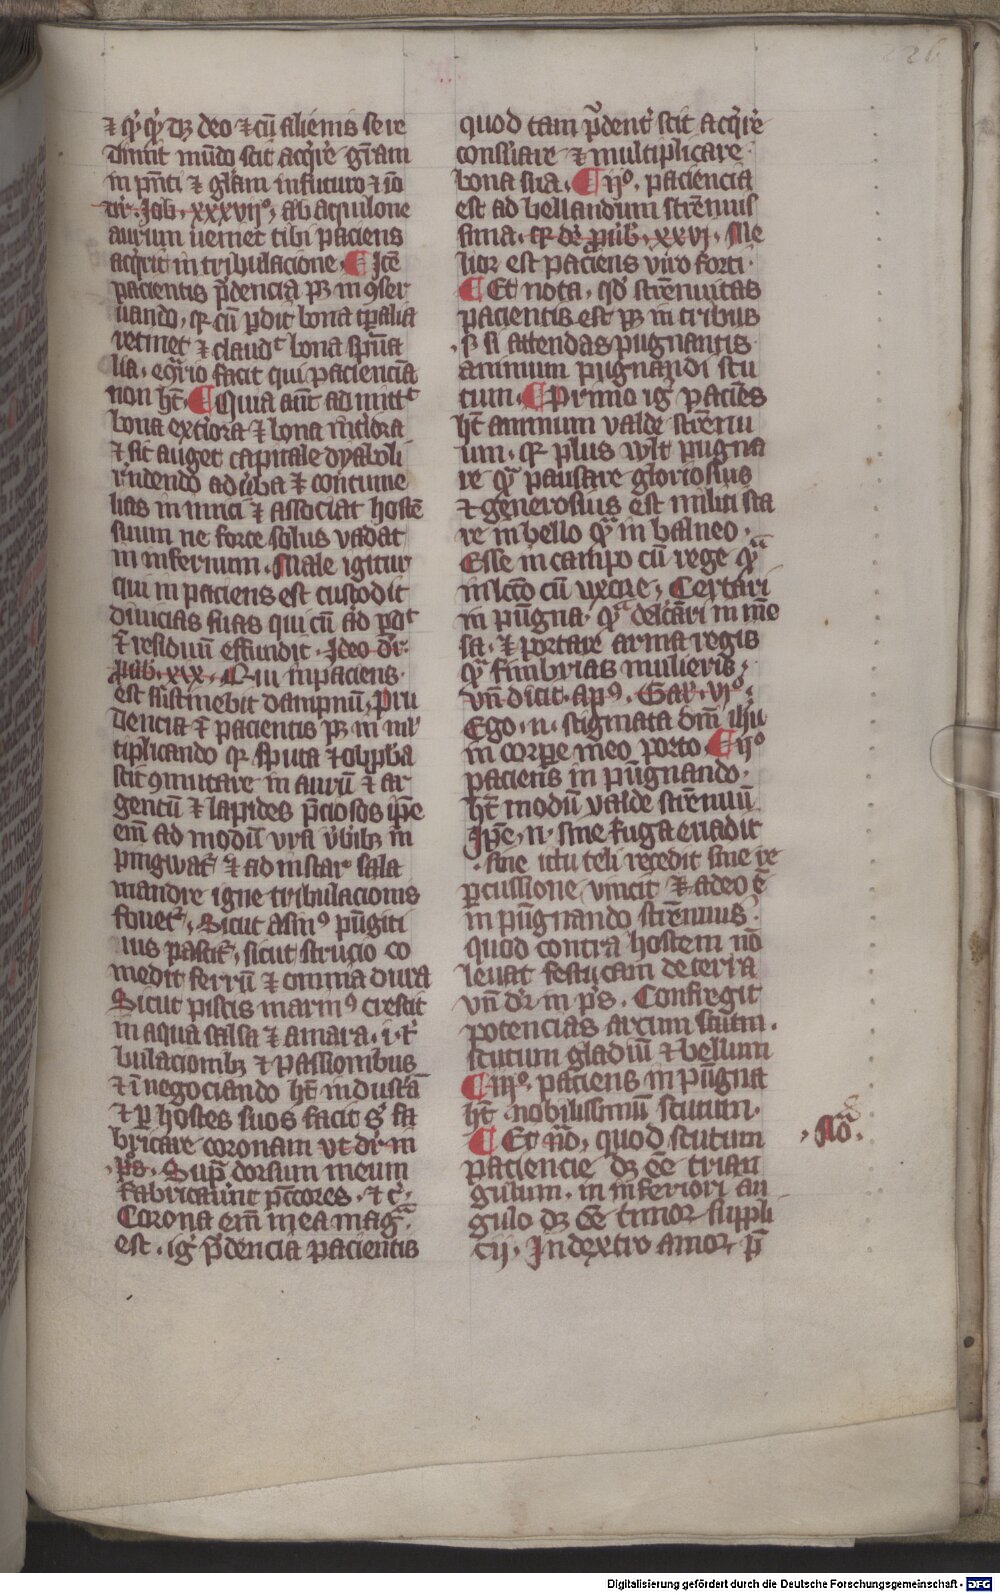 226
⁊ q̄ q̄ dꝫ deo ⁊ cū alienis se re
dimit mūdo scit acq̄re gr̄am
in pn̄ti ⁊ gl̄am in futuro ⁊ iō
dr̄. Job. xxxvijº. ab aquilone
aurum ueniet tibi paciens
acq̄rit in tribulacione. ¶ Itē
pacientis p̄dencia pꝫ in ꝯser
uando, qꝛ cū ꝑdit bona tꝑalia
retinet ⁊ claudᵗ bona spūa
lia. eꝯrio facit qui pacienciā
non hꝫ. ¶ Quia aūt admittᵗ
bona exti̾ora ⁊ bona int̾iora
⁊ sic auget capitale dyaboli
adūba ⁊ contume
lias inimici ⁊ associat hostē
suum ne forte solus vadat
in infernum. Male igitur
qui inpaciens est custodit
diuicias suas qui cū ad ꝑdᵗ
⁊ residuū effundit. Ideo dr̄.
puͥb. xix. Qui inpaciens
est sustinebit dampnū. Pru
dencia ⁊ pacientis pꝫ in ml̾
tiplicando qꝛ sputa ⁊ obpba
scit ꝯmutare in aurū ⁊ ar
gentū ⁊ lapides p̄ciosos ipse
em̄ ad modū vrsi v̾bibꝫ in
pingwat̾ ⁊ ad instar sala
mandre igne tribulacionis
fouet̾. Sicut asinꝰ pūgiti
uis pascit̾, sicut strucio co
medit ferrū ⁊ omnia dura
Sicut piscis marinꝰ crescit
in aqua salsa ⁊ amara. i. t̾
bulacionibꝫ ⁊ passionibus
⁊ ī negociando hꝫ industā
⁊ ꝑ hostes suos facit ß fa
bricare coronam vt dr̄ in
p̄s. Supͣ dorsum meum
fabricauūt pctōres. ⁊ cͥ.
Corona em̄ mea magͣ
est. igͥ p̄dencia pacientis
quod tam p̄dentͥ scit acq̄re
conseruare ⁊ multiplicare
bona sua. ¶ ijº. paciencia
est ad bellandum strēnuis
sima. qꝛ dr̄ puͥb. xxvi. Me
lior est paciens viro forti.
¶ Et nota, qd̾ strēnuitas
pacientis est pꝫ in tribus
. s̾ si attendas pugnantis
animum pugnandi scu
tum. ¶ Primo igͥ paciēs
hꝫ animum valde strēnu
um. qꝛ plus vlt pugna
re qͣ pausare gloriosius
⁊ generosius est militi sta
re in bello qͣ in balneo.
Esse in campo cū rege qͣ
in lc̄o cū vxore. Certari
in pūgna. qͣ delc̄ari in mē
sa. ⁊ portare arma regis
qͣ fimbrias mulieris.
vn̄ dicit. apꝰ. Gaꝉ. vjº.
Ego. n. stigmata dn̄i ihū
in corꝑe meo porto. ¶ ijº
paciens in pūgnando.
hꝫ modū valde strēnuū
Ipse. n. sine fuga euadit
. sine ictu teli recedit sine re
ꝑcussione vincit. ⁊ adeo ē
in pūgnando strēnuus.
quod contra hostem nō
leuat festucam de terra
vn̄ dr̄ in p̄s. Confregit
potencias arcum scutm̄.
scutum gladiū ⁊ bellum
¶ iijº. paciens in pūgna
hꝫ nobilissimū scutum.
¶ Et nō, quod scutum
paciencie dꝫ ēē trian
gulum. in inferiori an
gulo dꝫ ēē timor suppli
cij. In dextro amor. p̄
. Nō.
Digitalisierung gefördert durch die Deutsche Forschungsgemeinschaft - DFG